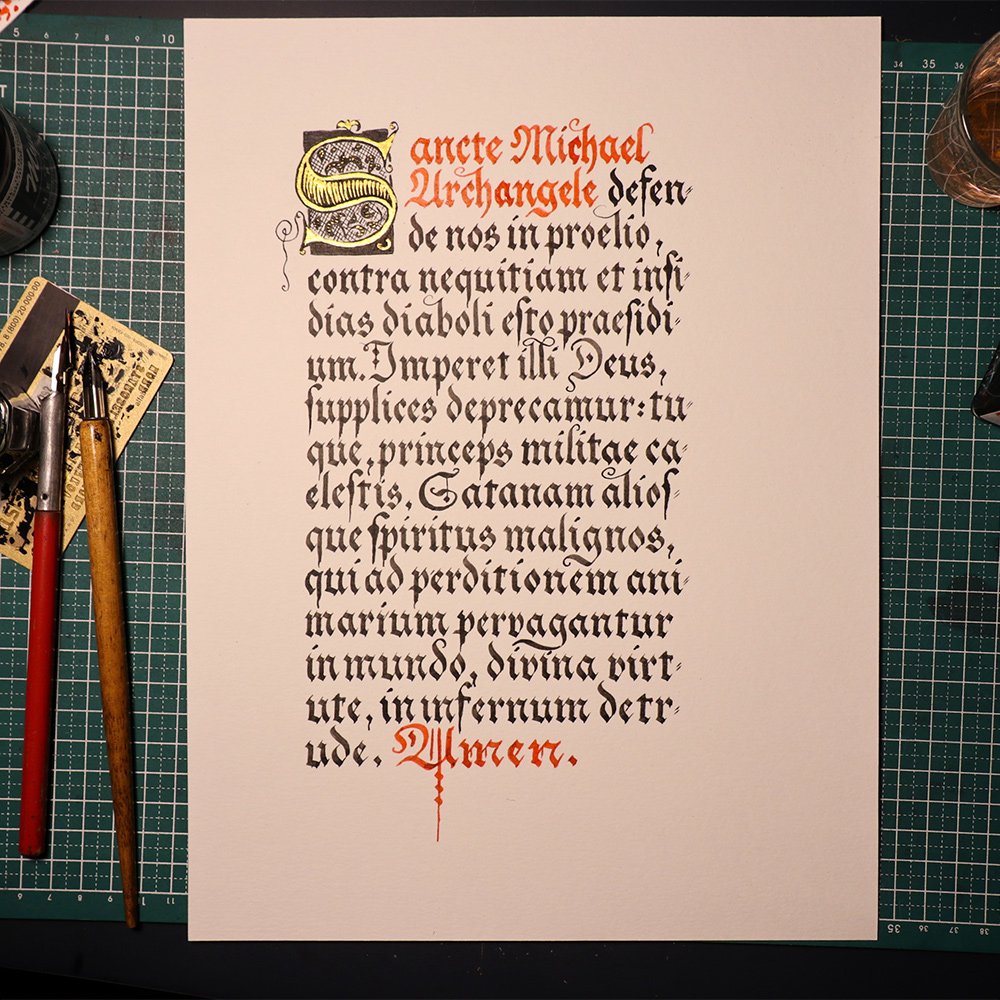 Sancte Michael
Archangele defen-
de nos in proelio,
contra nequitiam et insi-
dias diaboli esto praesidi-
um. Imperet illi Deus,
supplices deprecamur: tu-
que, princeps militae ca-
elestis, Satanam alios-
que spiritus malignos,
qui ad perditionem ani-
marium pervagantur
in mundo, divina virt-
ute, in infernum detr-
ude. Amen.